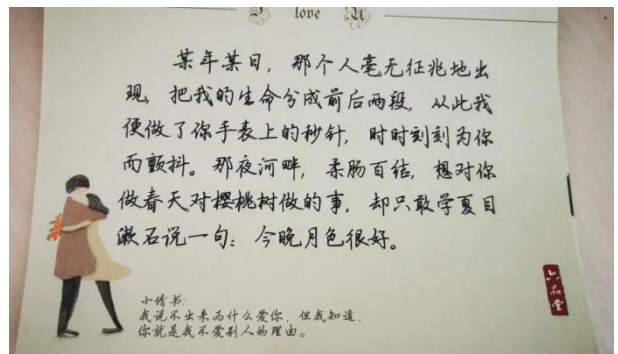 I love U
某年某日，那个人毫无征兆地出
现，把我的生命分成前后两段，从此我
便做了你手表上的秒针，时时刻刻为你
而颤抖。那夜河畔，柔肠百结，想对你
做春天对樱桃树做的事，却只敢学夏目
漱石说一句：今晚月色很好。
六品堂
小情书：
我说不出来为什么爱你，但我知道，
你就是我不爱别人的理由。